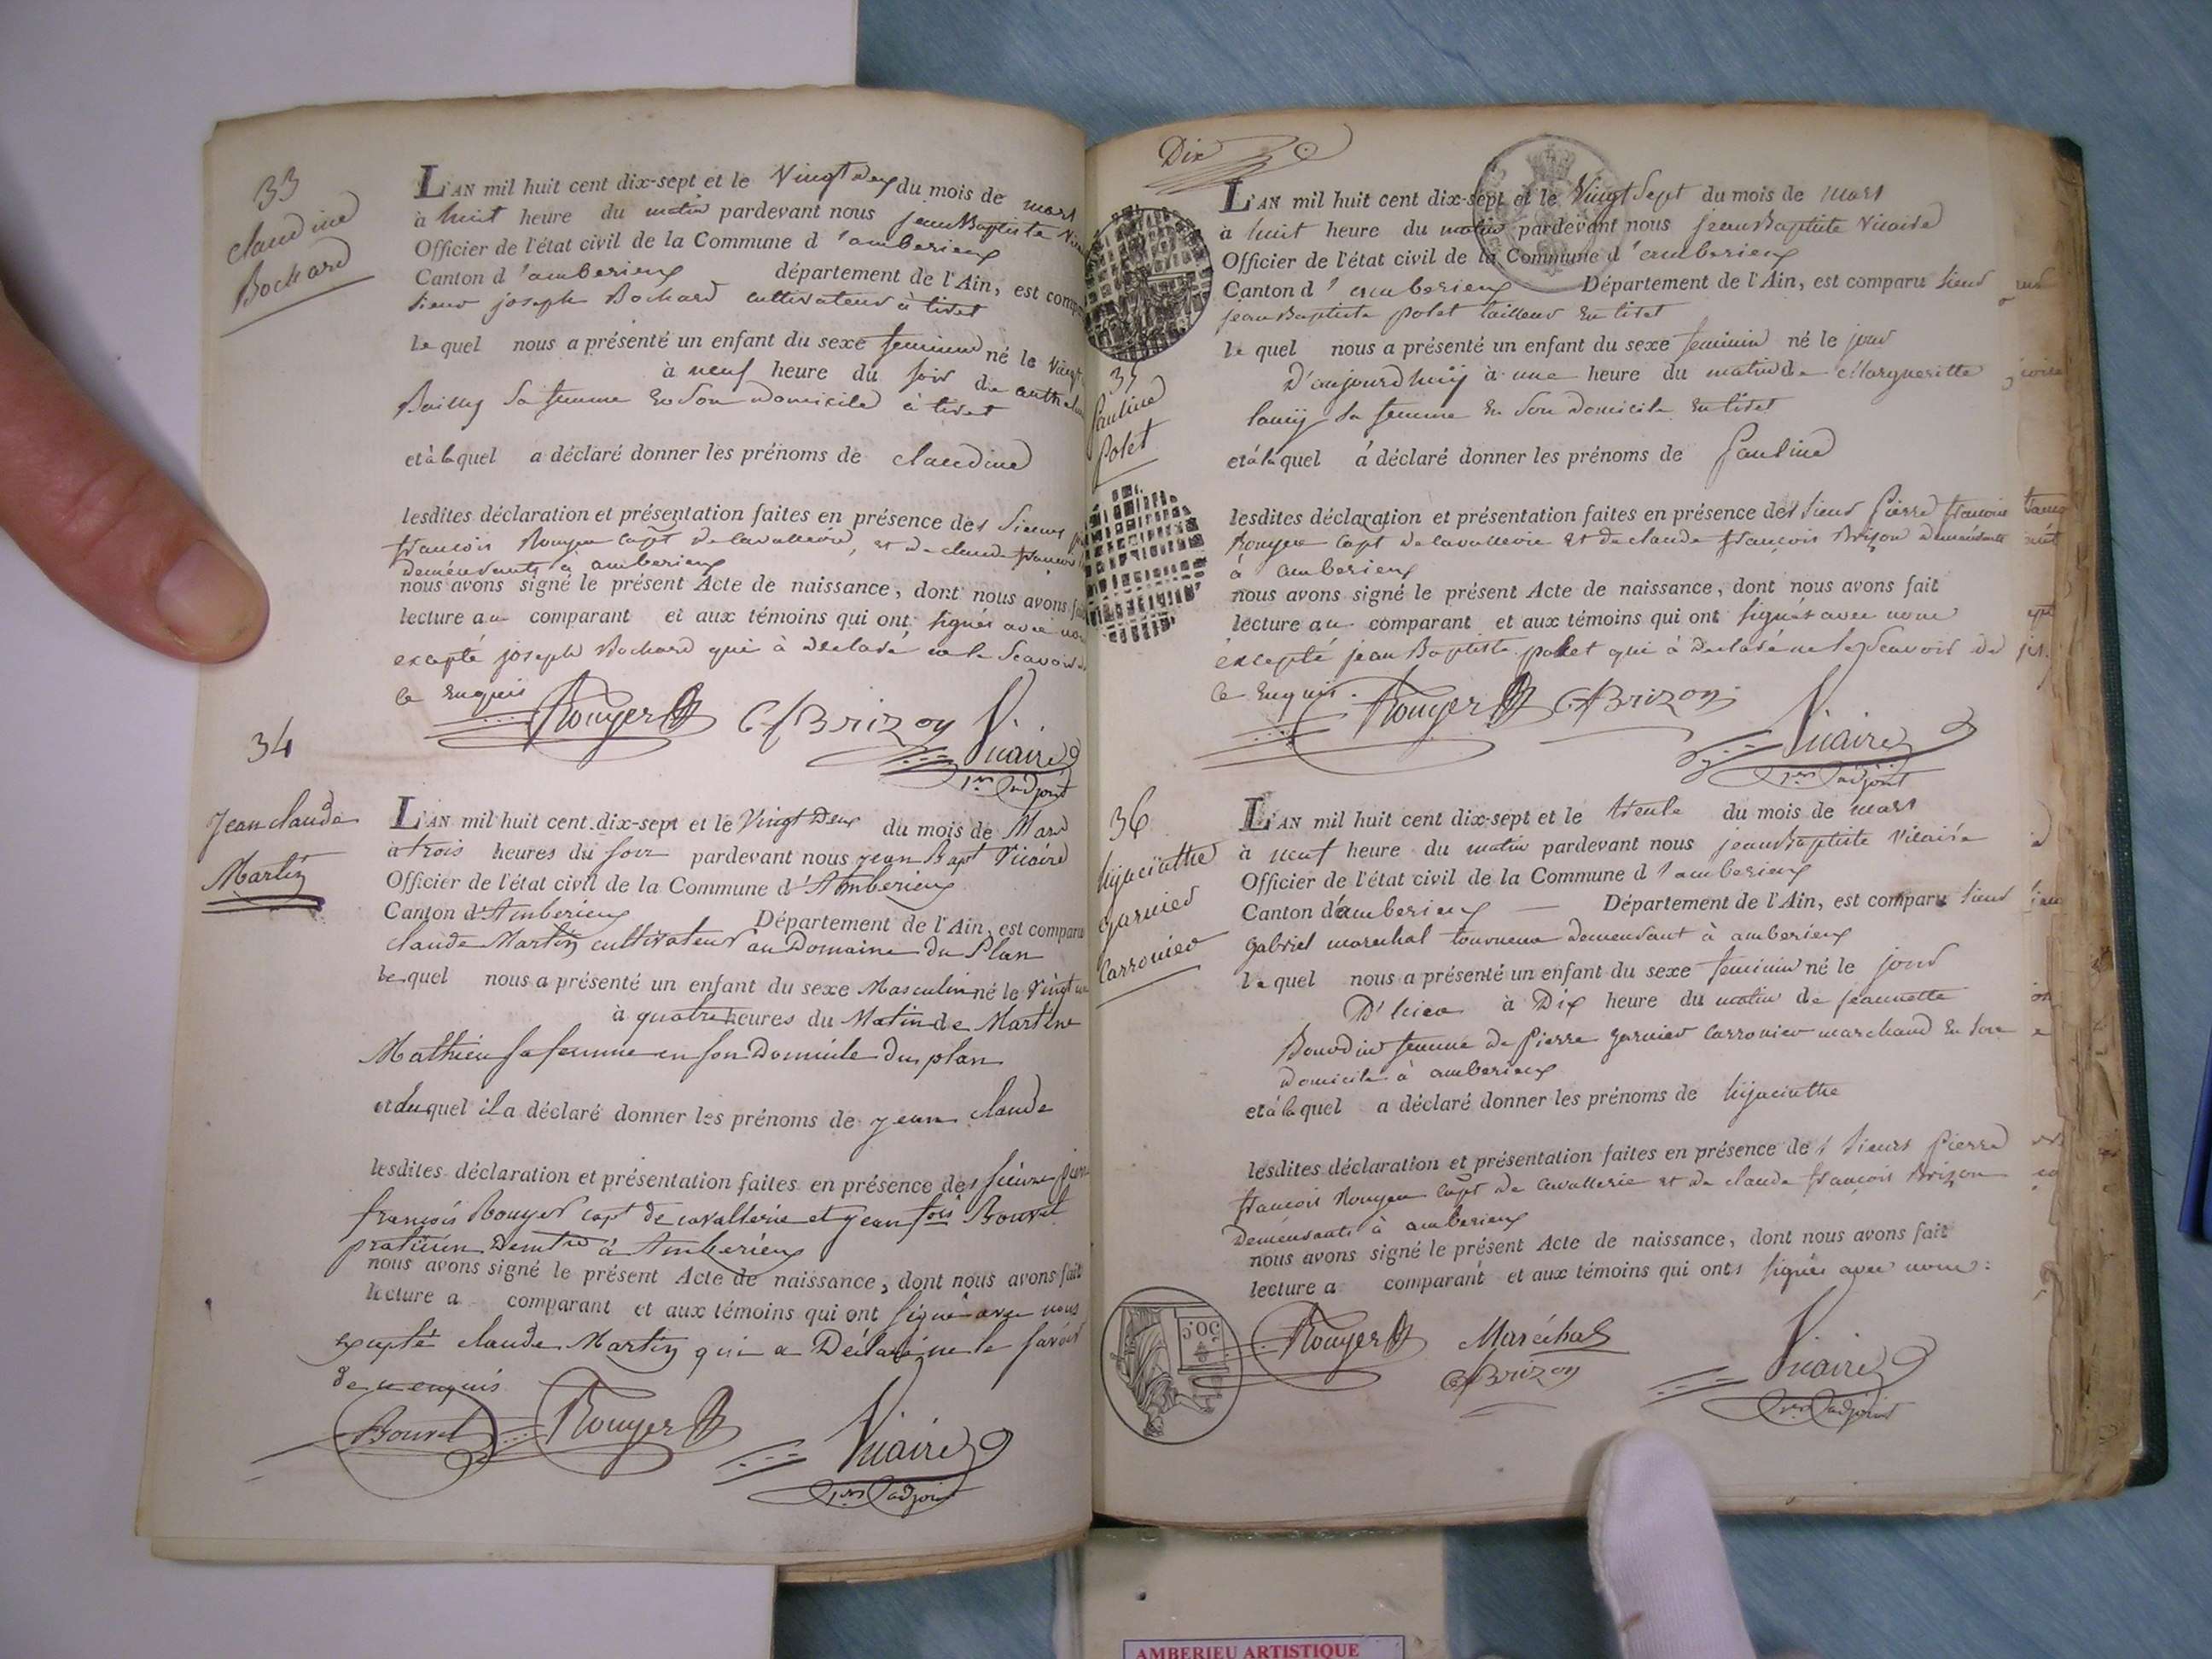 33
Claudine
Bochard
L'AN mil huit cent dix-sept et le Vingt deux du mois de mars
à huit heure du matin pardevant nous jean Baptiste
Officier de l'état civil de la Commune d'amberieux
Canton d'amberieux département de l'Ain, est
sieur joseph Bochard cultivateur à tiret
lequel nous a présenté un enfant du sexe feminin né le Vingt
à neuf heure du soir de
Bailly sa femme en son domicile à tiret
et à laquel a déclaré donner les prénoms de claudine
lesdites déclaration et présentation faites en présence des sieurs
francois Rouyer capt de cavallerie, et de claude francois
demeurants à amberieux
nous avons signé le présent Acte de naissance, dont nous avons fait
lecture au comparant et aux témoins qui ont signés avec nous
excepté joseph Bochard qui à declaré ne le scavoir de
ce enquis
Rouyer CfBrizon Vicaire
1er adjoint
34
Jean claude
Martin
L'AN mil huit cent dix-sept et le Vingt Deux du mois de Mars
à trois heures du soir pardevant nous jean Bapt Vicaire
Officier de l'état civil de la Commune d'Amberieux
Canton d'Amberieux Département de l'Ain, est comparu
claude Martin cultivateur au Domaine du Plan
lequel nous a présenté un enfant du sexe Masculin né le Vingt
à quatre heures du Matin de Martine
Mathieu sa femme en son Domicile du plan
et duquel il a déclaré donner les prénoms de jean claude
lesdites déclaration et présentation faites en présence des sieurs
françois Rouyer capt de cavallerie et jean fois Bouvet
praticien Demts à Amberieux
nous avons signé le présent Acte de naissance, dont nous avons fait
lecture a comparant et aux témoins qui ont signé avec nous
excepté claude Martin qui a Déclaré ne le savoir
de ce enquis
Bouvet Rouyer Vicaire
1er adjoint
Dix
L'AN mil huit cent dix-sept et le Vingt Sept du mois de mars
à huit heure du matin pardevant nous jean Baptiste Vicaire
Officier de l'état civil de la Commune d'amberieux
Canton d'amberieux Département de l'Ain, est comparu sieur
jean Baptiste polet tailleur en tiret
lequel nous a présenté un enfant du sexe feminin né le jour
D'aujourdhuij à une heure du matin de Margueritte
lamy sa femme en son domicile en tiret
35
Pauline
Polet
et à laquel à déclaré donner les prénoms de Pauline
lesdites déclaration et présentation faites en présence des sieur Pierre francois
Rouyer capt de cavallerie et de claude françois Brizon demeurants
à amberieux
nous avons signé le présent Acte de naissance, dont nous avons fait
lecture au comparant et aux témoins qui ont signés avec nous
excepté jean Baptiste polet qui à declaré ne le scavoir de
ce enquis.
Rouyer CfBrizon
Vicaire
1er adjoint
36
hijacinthe
garnier
Carronier
L'AN mil huit cent dix-sept et le trente du mois de mars
à neuf heure du matin pardevant nous jean Baptiste Vicaire
Officier de l'état civil de la Commune d'amberieux
Canton d'amberieux — Département de l'Ain, est comparu sieur
gabriel marechal tourneur demeurant à amberieux
lequel nous a présenté un enfant du sexe feminin né le jour
D'hier à Dix heure du matin de jeannette
Bourdin femme de Pierre garnier Carronier marchand en son
domicile à amberieux
et à laquel a déclaré donner les prénoms de hijacinthe
lesdites déclaration et présentation faites en présence des sieurs Pierre
francois Rouyer capt de cavallerie et de claude françois Brizon
Demeurants à amberieux
nous avons signé le présent Acte de naissance, dont nous avons fait
lecture a comparant et aux témoins qui onts signés avec nous:
50c
Rouyer Maréchal
CfBrizon
Vicaire
1er adjoint
AMBERIEU ARTISTIQUE